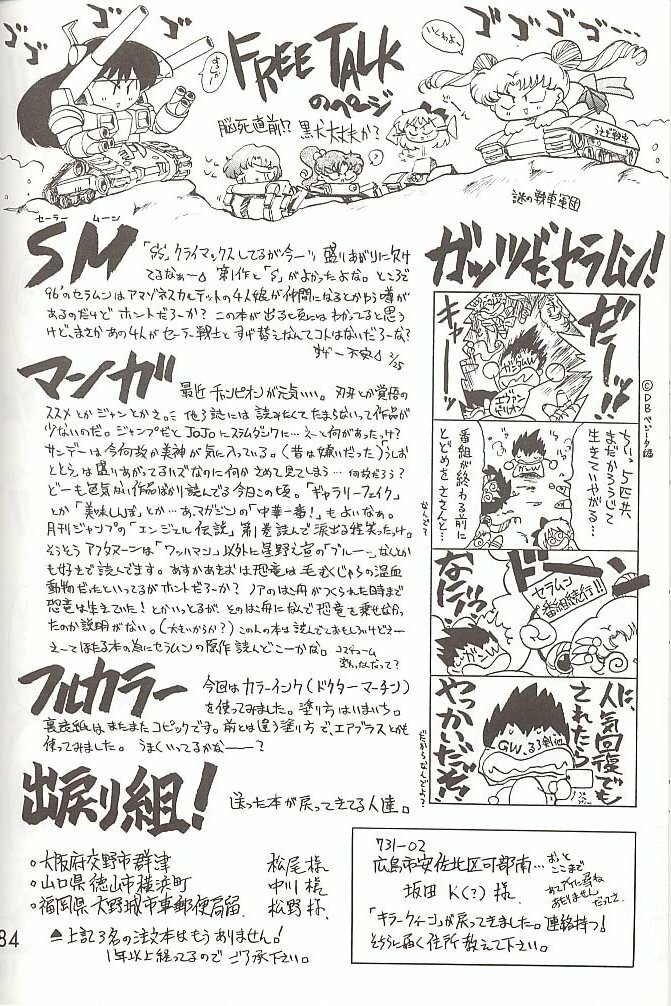 ゴゴゴ
FREE TALK
のページ
ゴゴゴゴ
脳死直前!? 黒犬大丈夫か?
謎の戦車軍団
セーラー ムーン
SM
「SS」クライマックスしてるが今一つ盛りあがりに欠け
てるなぁ〜 第1作と「S」がよかったよな。ところで
96'のセラムンはアマゾネスカルテットの4人娘が仲間になるとかゆう噂が
あるのだけどホントだろーか? この本が出ると頃にはわかってると思う
けど、まさかあの4人がセーラー戦士とすげ替えなんてコトはないだろーな?
2/25
マンガ
最近チャンピオンが元気いい。刃牙とか覚悟の
ススメとかジャンとかさ。 他3誌には読みたくてたまらないって作品が
少ないのだ。ジャンプだとJoJoにスラムダンクに…え〜て何があったっけ?
サンデーは今何故か美神が気に入っている。(昔は嫌いだった)うしお
ととらは盛りあがってるハズなのに何かさめて見てしまう… 何故だろう?
どーも色気ない作品ばかり読んでる今日この頃。「ギャラリーフェイク」
とか「美味しんぼ」とか…あ、マガジンの「中華一番!」もよいなぁ。
月刊ジャンプの「エンジェル伝説」第1巻読んで涙出る程笑ったっけ。
そうそうアフタヌーンは「ワッハマン」以外に星野之宣の「ブルー」なんとか
も好きで読んでます。あすかあきおは恐竜は毛むくじゃらの温血
動物だったといってるがホントだろーか? ノアのはこ舟がつくられた時まで
恐竜は生きていた!とかいっとるが、そのはこ舟になんで恐竜を乗せなかっ
たのか説明がない。(大きいからか?)この人の本は読んでておもしろいけどさー
え〜てほたる本の為にセラムンの原作読んどこーかな。
フルカラー
今回はカラーインク(ドクターマーチン)
を使ってみました。塗り方はいまいち。
裏表紙はまたまたコピックです。前とは違う塗り方で、エアブラスとかも
使ってみました。 うまくいってるかな———?
出戻り組!
送った本が戻ってきてる人達。
○大阪府交野市群津 松尾様
○山口県徳山市横浜町 中川様
○福岡県大野城市東郵便局留 松野様
▲上記3名の注文本はもうありません!
1年以上経ってるのでご了承下さい。
84
ガッツだセラムン!
©DBベジータ編
ゼーッ!!
キャー
ガンダムW
エヴァンゲリオン
ちいっ、5匹共
まだかろうじて
生きていやがる…
番組が終わる前に
とどめをささんと…
なんで?
ドーン
セラムン
番組続行!!
なにィッ!
人気回復でも
されたら
やっかいだぞ!
GW.るろ剣他
だからなんでよ?
731-02
広島市安佐北区可部南…
おっと
ここまで
坂田 K(?)様
「キラークィーン」が戻ってきました。連絡持つ!
そちらに届く住所教えて下さい。